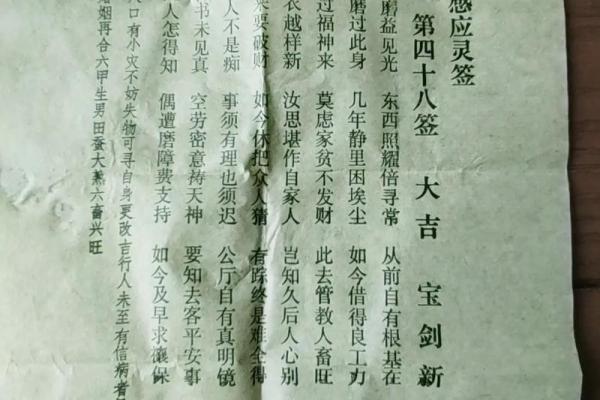 感应灵签
第四十八签 大吉 宝剑新
磨益见光 东西照耀倍寻常 从前自有根基在
磨过此身 几年静里困埃尘 如今借得良工力
过福神来 莫虑家贫不发财 此去管教人畜旺
衣越样新 汝思堪作自家人 岂知久后人心别
来要破财 如今休把众人猜 有踪终是难全得
人不是痴 事须有理也须迟 公厅自有真明镜
书未见真 空劳密意祷天神 要知去客平安事
人怎得知 偶遭磨障费支持 如今及早求禳保
口有小灾不妨失物可寻自身更改吉行人未至有信病者
姻再合六甲生男田蚕大熟六畜兴旺